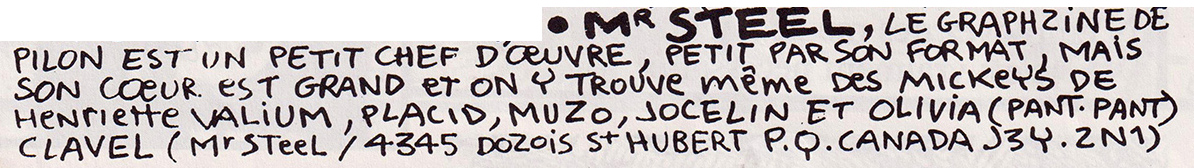 • Mr STEEL, LE GRAPHZINE DE
PILON EST UN PETIT CHEF D'ŒUVRE, PETIT PAR SON FORMAT, MAIS
SON CŒUR EST GRAND ET ON Y TROUVE même DES MICKEYS DE
Henriette VALIUM, PLACID, MUZO, JOCELIN ET OLIVIA (PANT. PANT)
CLAVEL (Mr STEEL / 4345 DOZOIS St HUBERT P.Q. CANADA J3Y. 2N1)